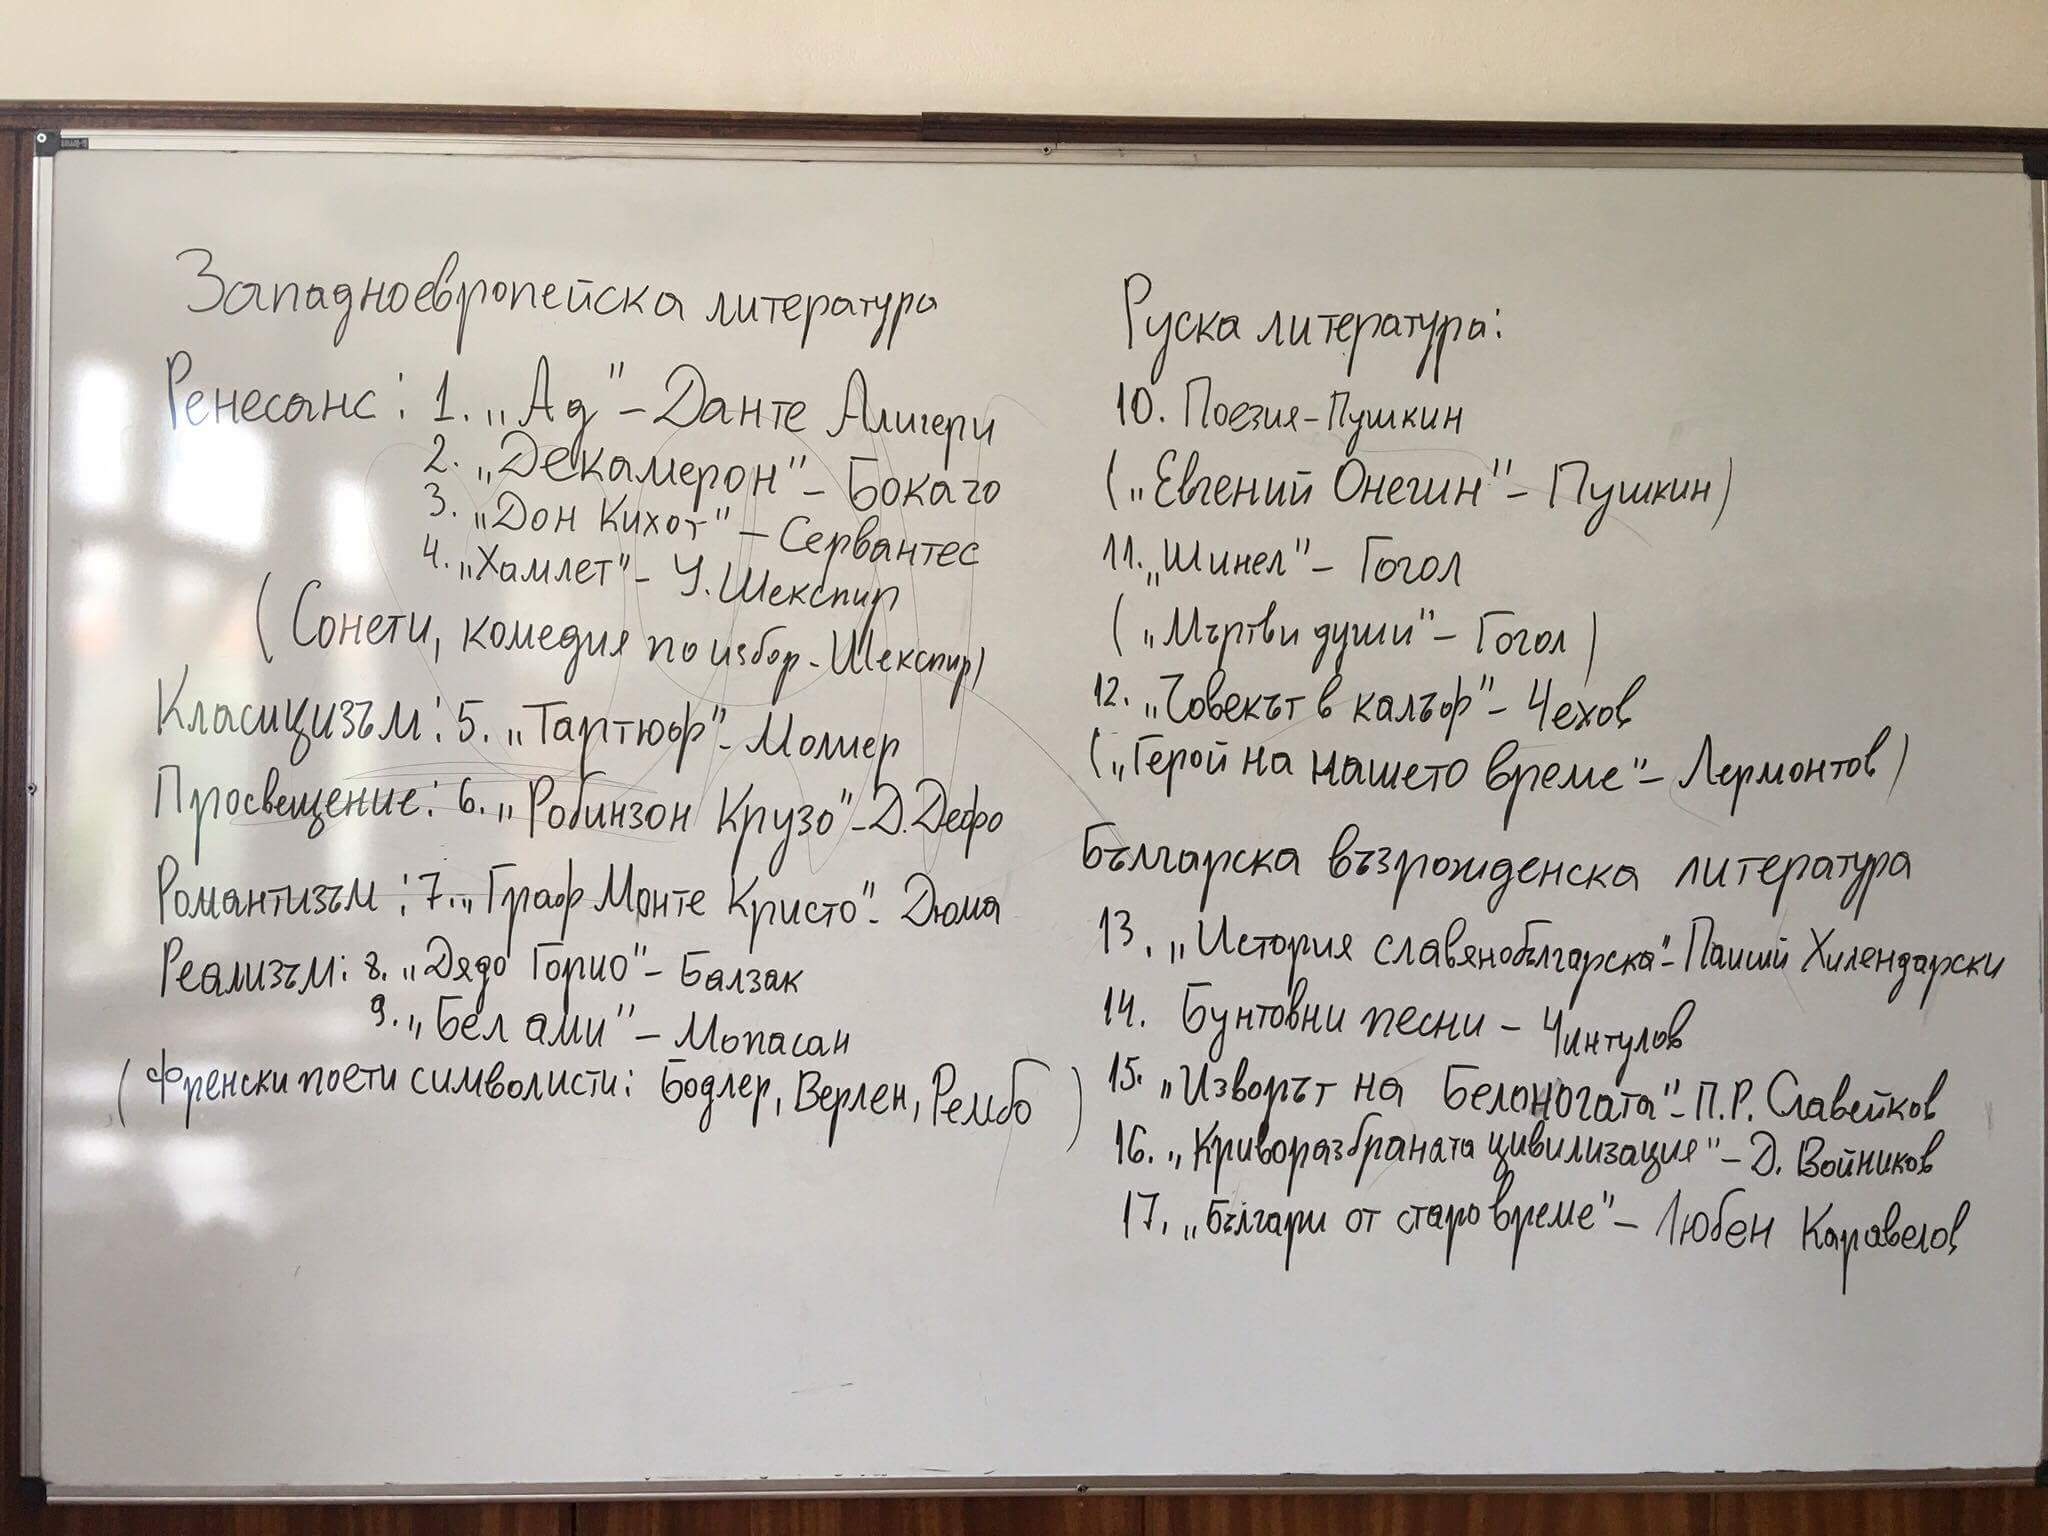 Западноевропейска литература
Ренесанс: 1. „Ад" – Данте Алигери
2. „Декамерон" – Бокачо
3. „Дон Кихот" – Сервантес
4. „Хамлет" – У. Шекспир
(Сонети, комедия по избор – Шекспир)
Класицизъм: 5. „Тартюф" – Молиер
Просвещение: 6. „Робинзон Крузо" – Д. Дефо
Романтизъм: 7. „Граф Монте Кристо" – Дюма
Реализъм: 8. „Дядо Горио" – Балзак
9. „Бел ами" – Мопасан
(Френски поети символисти: Бодлер, Верлен, Рембо)
Руска литература:
10. Поезия – Пушкин
(„Евгений Онегин" – Пушкин)
11. „Шинел" – Гогол
(„Мъртви души" – Гогол)
12. „Човекът в калъф" – Чехов
(„Герой на нашето време" – Лермонтов)
Българска възрожденска литература
13. „История славянобългарска" – Паисий Хилендарски
14. Бунтовни песни – Чинтулов
15. „Изворът на Белоногата" – П.Р. Славейков
16. „Криворазбраната цивилизация" – Д. Войников
17. „Българи от старо време" – Любен Каравелов